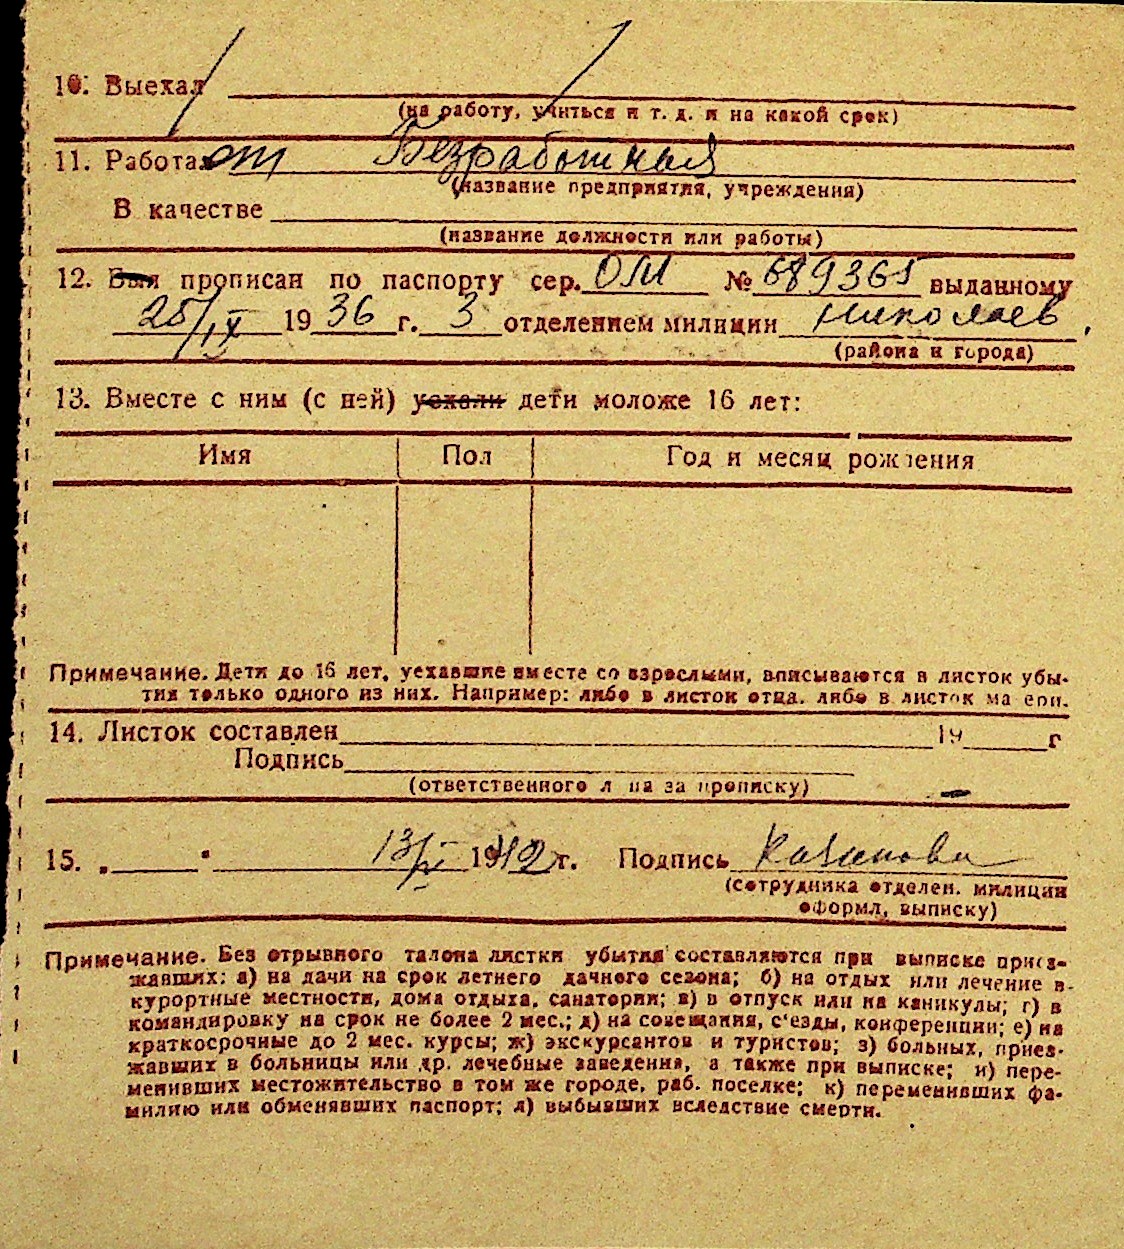 10. Выехал
(на работу, учиться и т. д. и на какой срок)
11. Работает Безработная
(название предприятия, учреждения)
В качестве
(название должности или работы)
12. Был прописан по паспорту сер. ОЛИ № 689365 выданному
25/IX 1936 г. 3 отделением милиции Николаев,
(района и города)
13. Вместе с ним (с ней) уехали дети моложе 16 лет:
Имя Пол Год и месяц рождения
Примечание. Дети до 16 лет, уехавшие вместе со взрослыми, вписываются в листок убы-
тия только одного из них. Например: либо в листок отца, либо в листок матери.
14. Листок составлен 19 г
Подпись
(ответственного лица за прописку)
15. „ " 1942 г. Подпись
(сотрудника отделен. милиции
оформл, выписку)
Примечание. Без отрывного талона листки убытия составляются при выписке приез-
жавших: а) на дачи на срок летнего дачного сезона; б) на отдых или лечение в
курортные местности, дома отдыха, санатории; в) в отпуск или на каникулы; г) в
командировку на срок не более 2 мес.; д) на совещания, с'езды, конференции; е) на
краткосрочные до 2 мес. курсы; ж) экскурсантов и туристов; з) больных, приез-
жавших в больницы или др. лечебные заведения, а также при выписке; и) пере-
менивших местожительство в том же городе, раб. поселке; к) переменивших фа-
милию или обменявших паспорт; л) выбывших вследствие смерти.